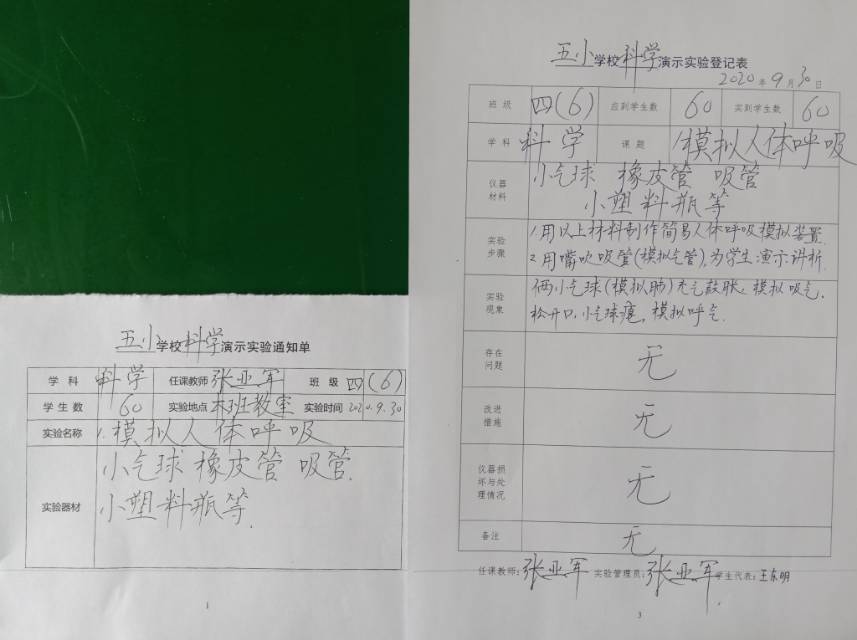 五小学校科学演示实验通知单
学科 科学 任课教师 张亚军 班级 四(6)
学生数 60 实验地点 本班教室 实验时间 2020.9.30
实验名称 1.模拟人体呼吸
实验器材 小气球 橡皮管 吸管
小塑料瓶等.
1
五小学校科学演示实验登记表
2020年9月30日
班级 四(6) 应到学生数 60 实到学生数 60
学科 科学 课题 1模拟人体呼吸
仪器材料 小气球 橡皮管 吸管
小塑料瓶等
实验步骤 1.用以上材料制作简易人体呼吸模拟装置.
2.用嘴吹吸管(模拟气管),为学生演示讲析.
实验现象 俩小气球(模拟肺)充气鼓胀,模拟吸气.
松开口,小气球瘪,模拟呼气.
存在问题 无
改进措施 无
仪器损坏与处理情况 无
备注 无
任课教师:张亚军 实验管理员:张亚军 学生代表:王东明
3